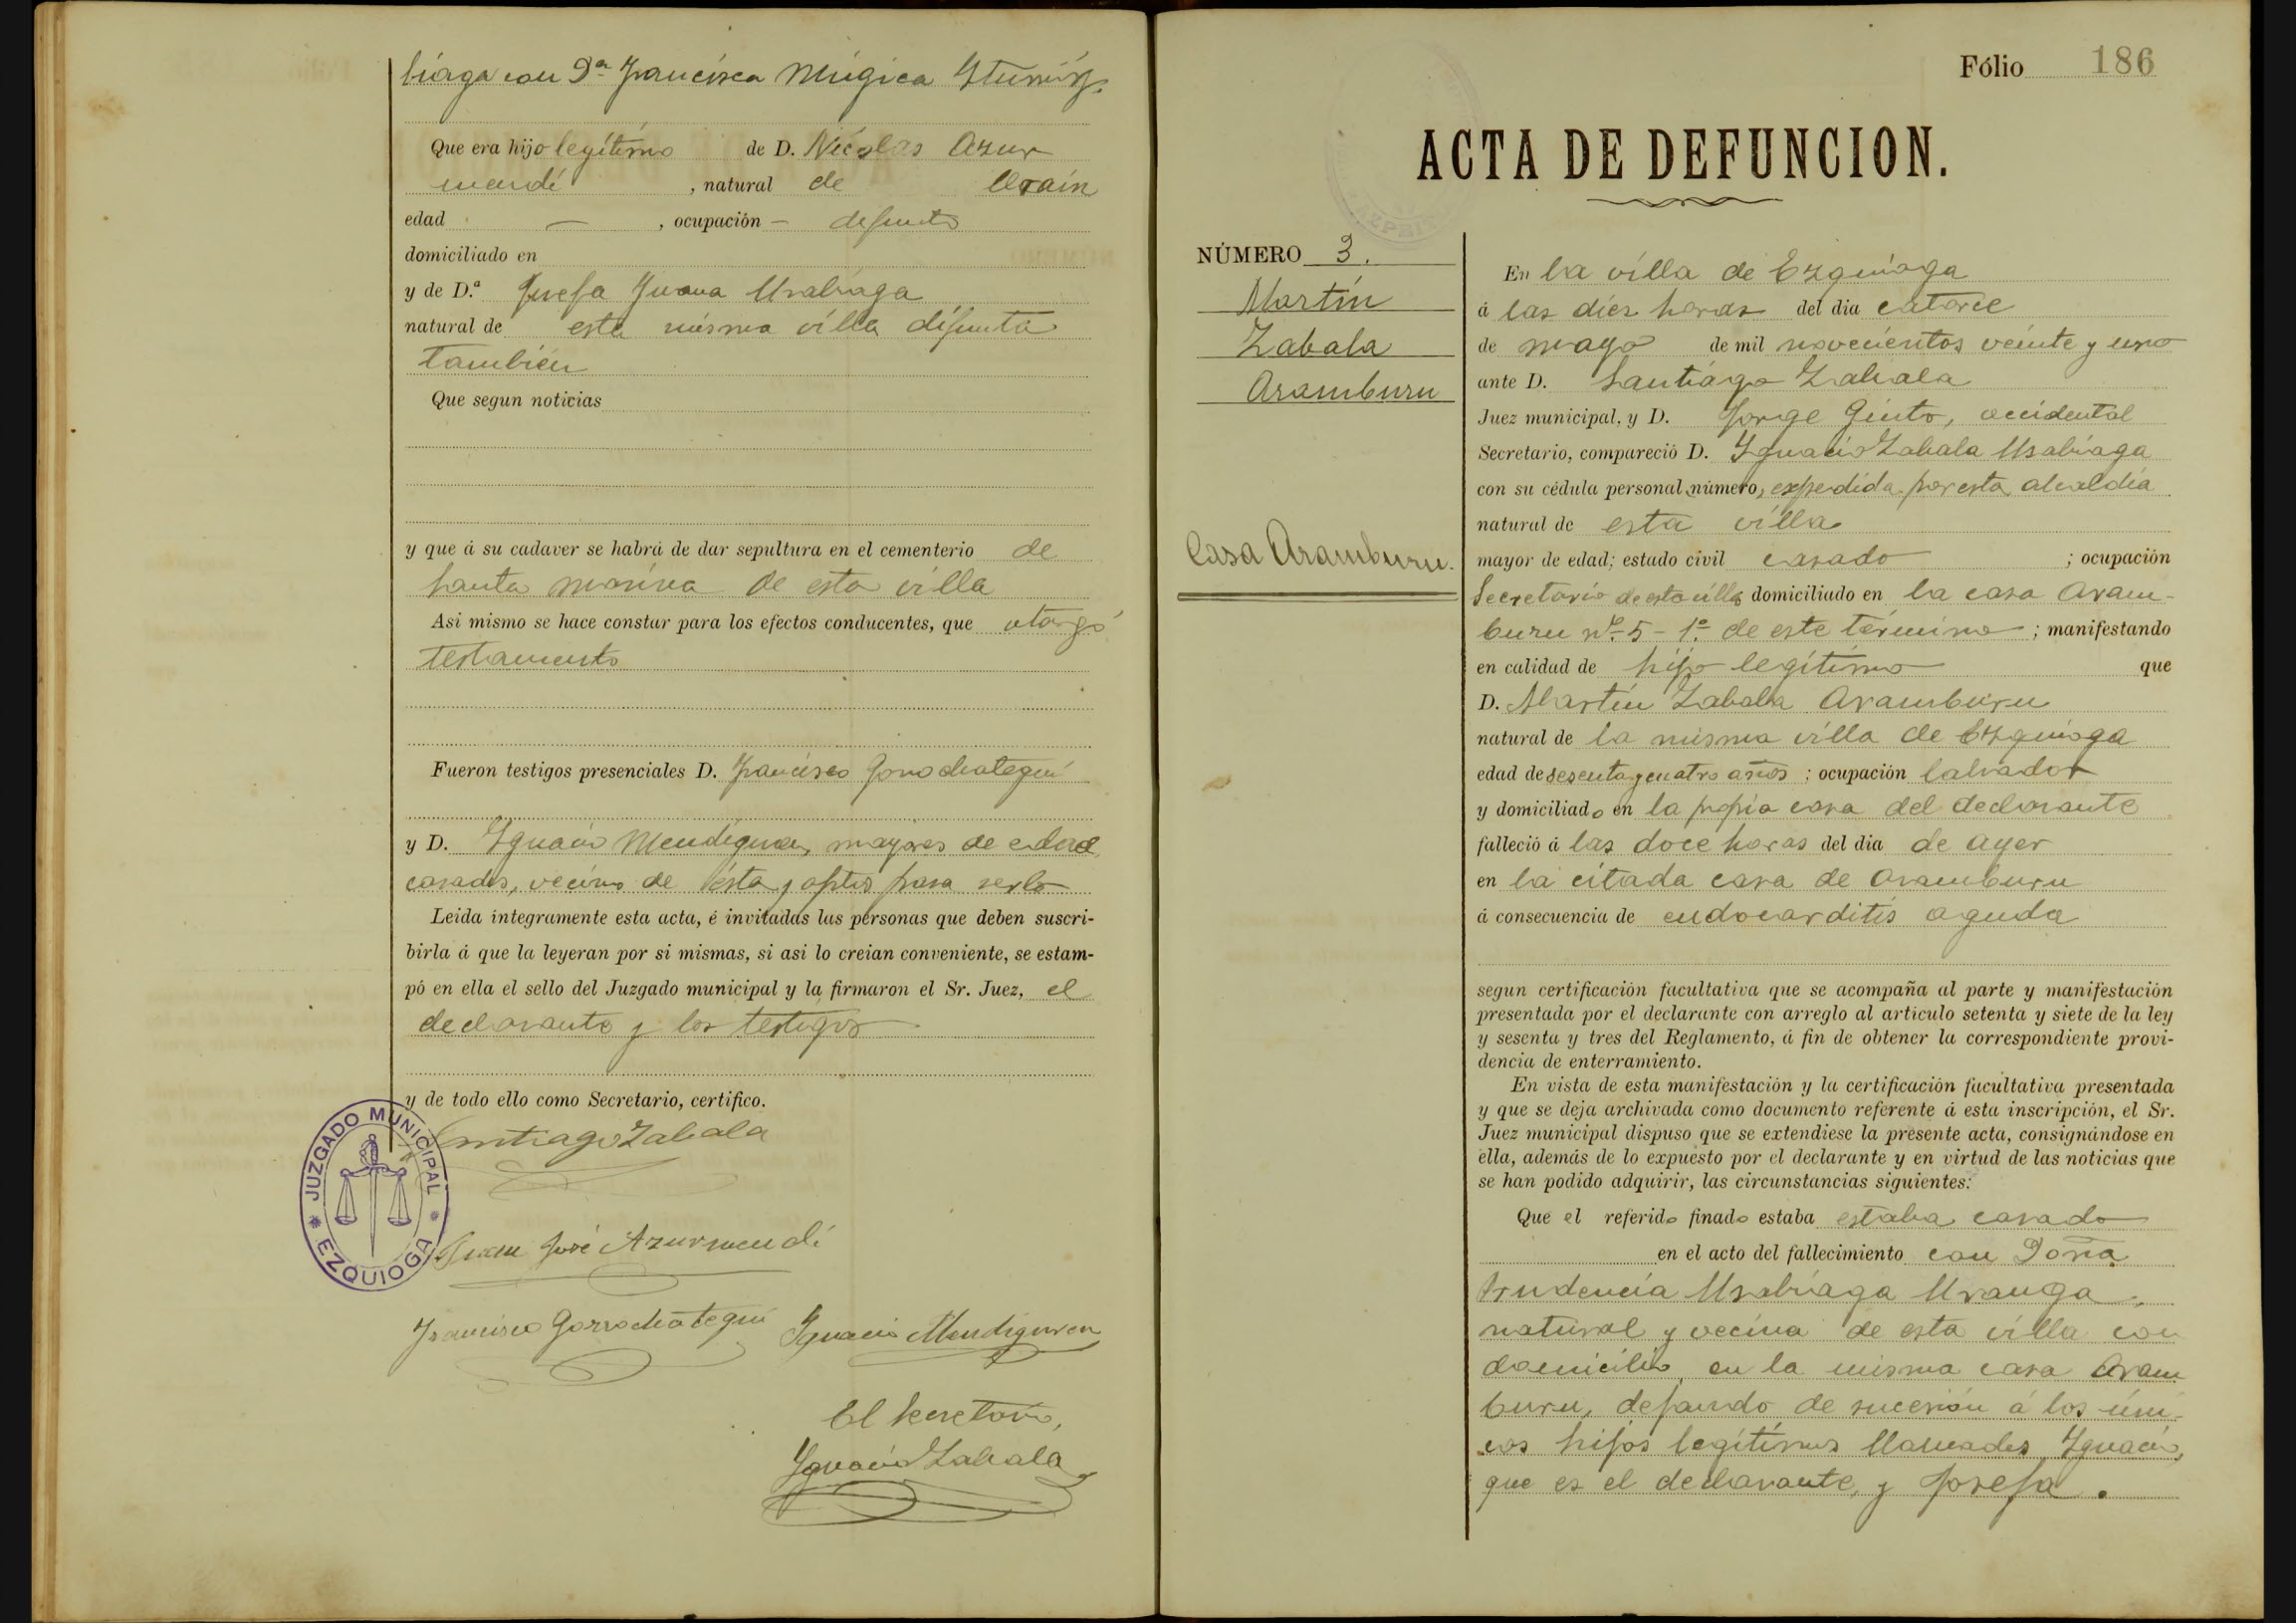 biaga con D.ª Francisca Múgica Iturrioz.
Que era hijo legítimo de D. Nicolas Azur
mendi, natural de Ataun
edad —, ocupación — defunto
domiciliado en
y de D.ª Josefa Juana Usabiaga
natural de esta misma villa difunta
también
Que segun noticias
y que á su cadaver se habrá de dar sepultura en el cementerio de
Santa Marina de esta villa
Asi mismo se hace constar para los efectos conducentes, que otorgó
testamento
Fueron testigos presenciales D. Francisco Gorrochategui
y D. Ignacio Mendiguren, mayores de edad,
casados, vecinos de ésta y aptos para serlo
Leida integramente esta acta, é invitadas las personas que deben suscri-
birla á que la leyeran por si mismas, si asi lo creian conveniente, se estam-
pó en ella el sello del Juzgado municipal y la firmaron el Sr. Juez, el
declarante y los testigos
y de todo ello como Secretario, certifico.
Santiago Zabala
JUZGADO MUNICIPAL * EZQUIOGA *
Juan José Azurmendi
Francisco Gorrochategui Ignacio Mendiguren
El Secretario,
Ignacio Zabala
Fólio 186
ACTA DE DEFUNCION.
NÚMERO 3.
Martín
Zabala
Aramburu
Casa Aramburu.
En la villa de Ezquioga
á las diez horas del dia catorce
de mayo de mil novecientos veinte y uno
ante D. Santiago Zabala
Juez municipal, y D. Jorge Ginto, accidental
Secretario, compareció D. Ignacio Zabala Usabiaga
con su cédula personal número, expedida por esta alcaldía
natural de esta villa
mayor de edad; estado civil casado; ocupación
Secretario de esta villa domiciliado en la casa Aram-
buru nº 5 - 1º de este término; manifestando
en calidad de hijo legítimo que
D. Martín Zabala Aramburu
natural de la misma villa de Ezquioga
edad de sesenta y cuatro años; ocupación labrador
y domiciliado en la propia casa del declarante
falleció á las doce horas del dia de ayer
en la citada casa de Aramburu
á consecuencia de endocarditis aguda
segun certificación facultativa que se acompaña al parte y manifestación
presentada por el declarante con arreglo al articulo setenta y siete de la ley
y sesenta y tres del Reglamento, á fin de obtener la correspondiente provi-
dencia de enterramiento.
En vista de esta manifestación y la certificación facultativa presentada
y que se deja archivada como documento referente á esta inscripción, el Sr.
Juez municipal dispuso que se extendiese la presente acta, consignándose en
ella, además de lo expuesto por el declarante y en virtud de las noticias que
se han podido adquirir, las circunstancias siguientes:
Que el referido finado estaba estaba casado
en el acto del fallecimiento con Doña
Prudencia Usabiaga Uranga,
natural y vecina de esta villa con
domicilio en la misma casa Aram
buru, dejando de sucesión á los úni-
cos hijos legítimos llamados Ignacio,
que es el declarante, y Josefa.